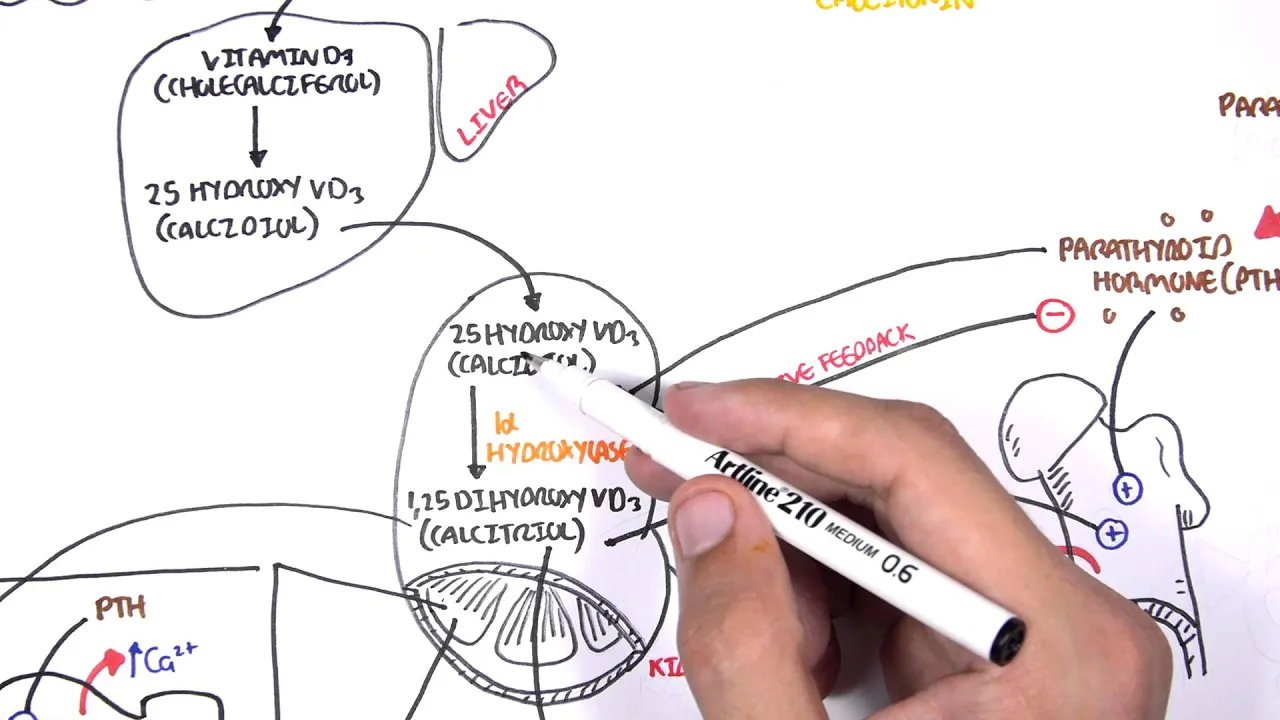 CALCITONIN
VITAMIN D3
(CHOLECALCIFEROL)
LIVER
25 HYDROXY VD3
(CALCIDIOL)
PARA
PARATHYROID
HORMONE (PTH
−
25 HYDROXY VD3
(CALCIDIOL)
VE FEEDBACK
1α
HYDROXYLASE
1,25 DIHYDROXY VD3
(CALCITRIOL)
+
+
Artline 210 MEDIUM 0.6
PTH
↑Ca2+
KI